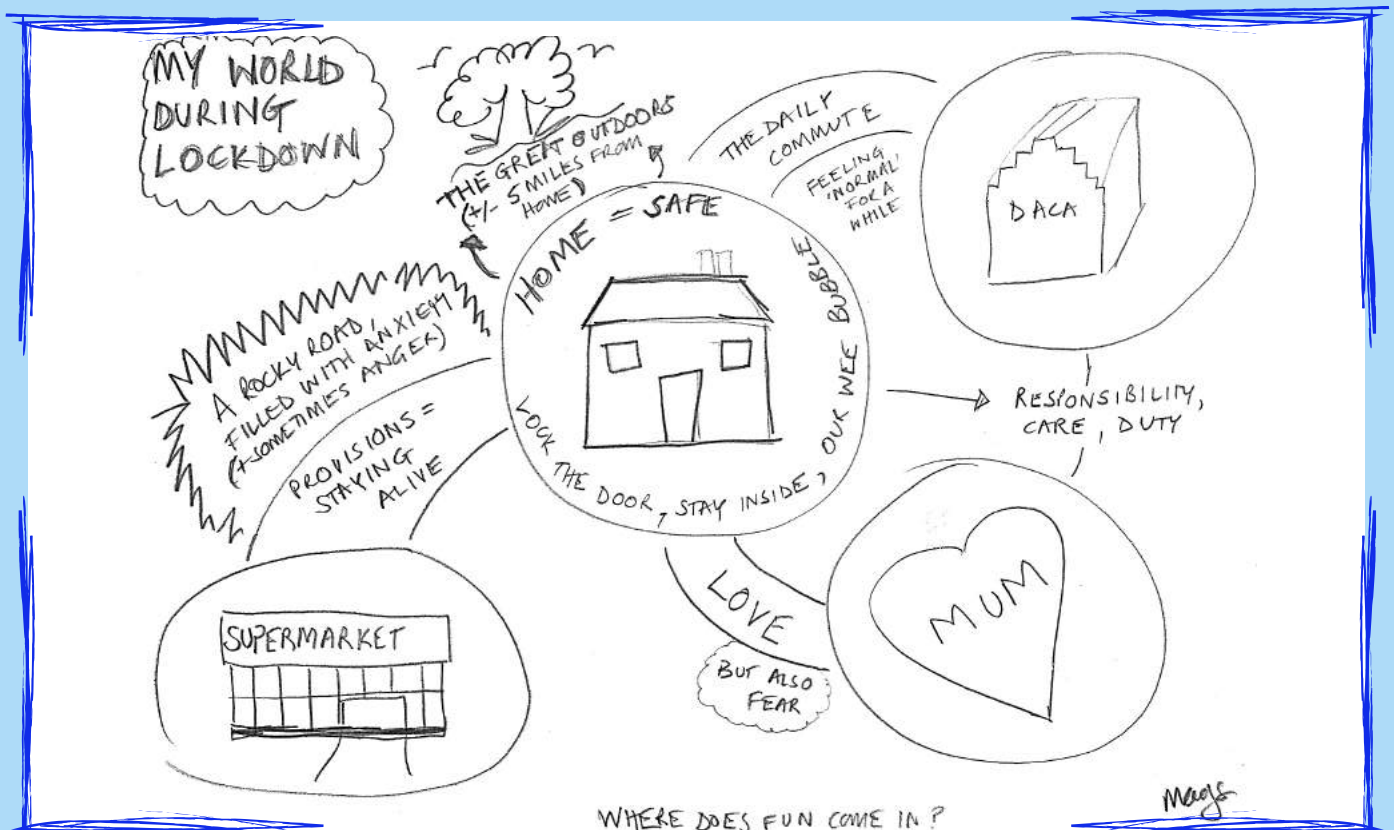 MY WORLD
DURING
LOCKDOWN
THE GREAT OUTDOORS
(+/- 5 MILES FROM
HOME)
THE DAILY
COMMUTE
FEELING
'NORMAL'
FOR A
WHILE
DACA
HOME = SAFE
LOCK THE DOOR, STAY INSIDE, OUR WEE BUBBLE
A ROCKY ROAD,
FILLED WITH ANXIETY
(+ SOMETIMES ANGER)
PROVISIONS =
STAYING
ALIVE
RESPONSIBILITY,
CARE, DUTY
SUPERMARKET
LOVE
BUT ALSO
FEAR
MUM
WHERE DOES FUN COME IN?
Mags